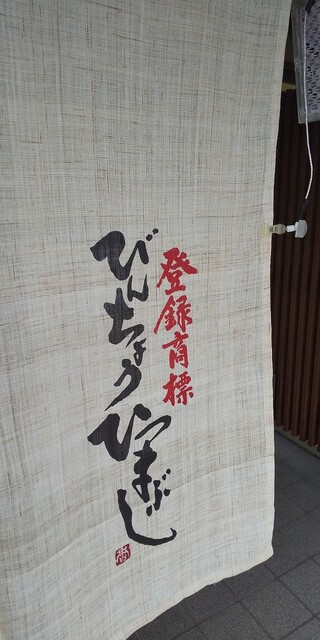 登録商標
びんちょう
ひつまぶし